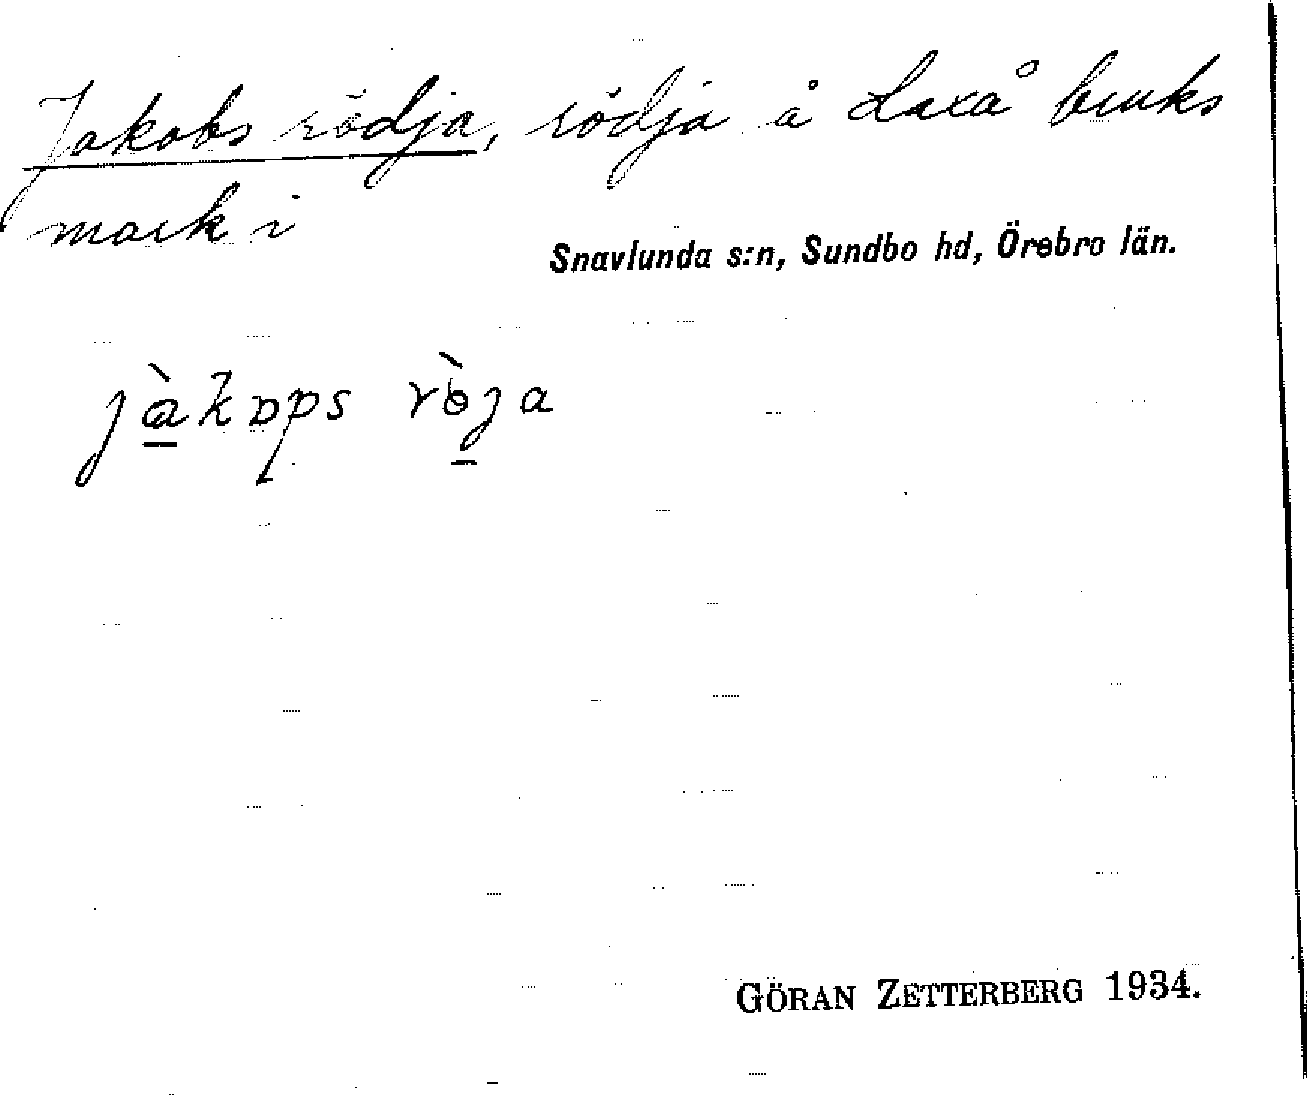 Jakobs rödja, rödja å Laxå bruks
mark i
Snavlunda s:n, Sundbo hd, Örebro län.
jàkɒps rɵ̀ja
GÖRAN ZETTERBERG 1934.